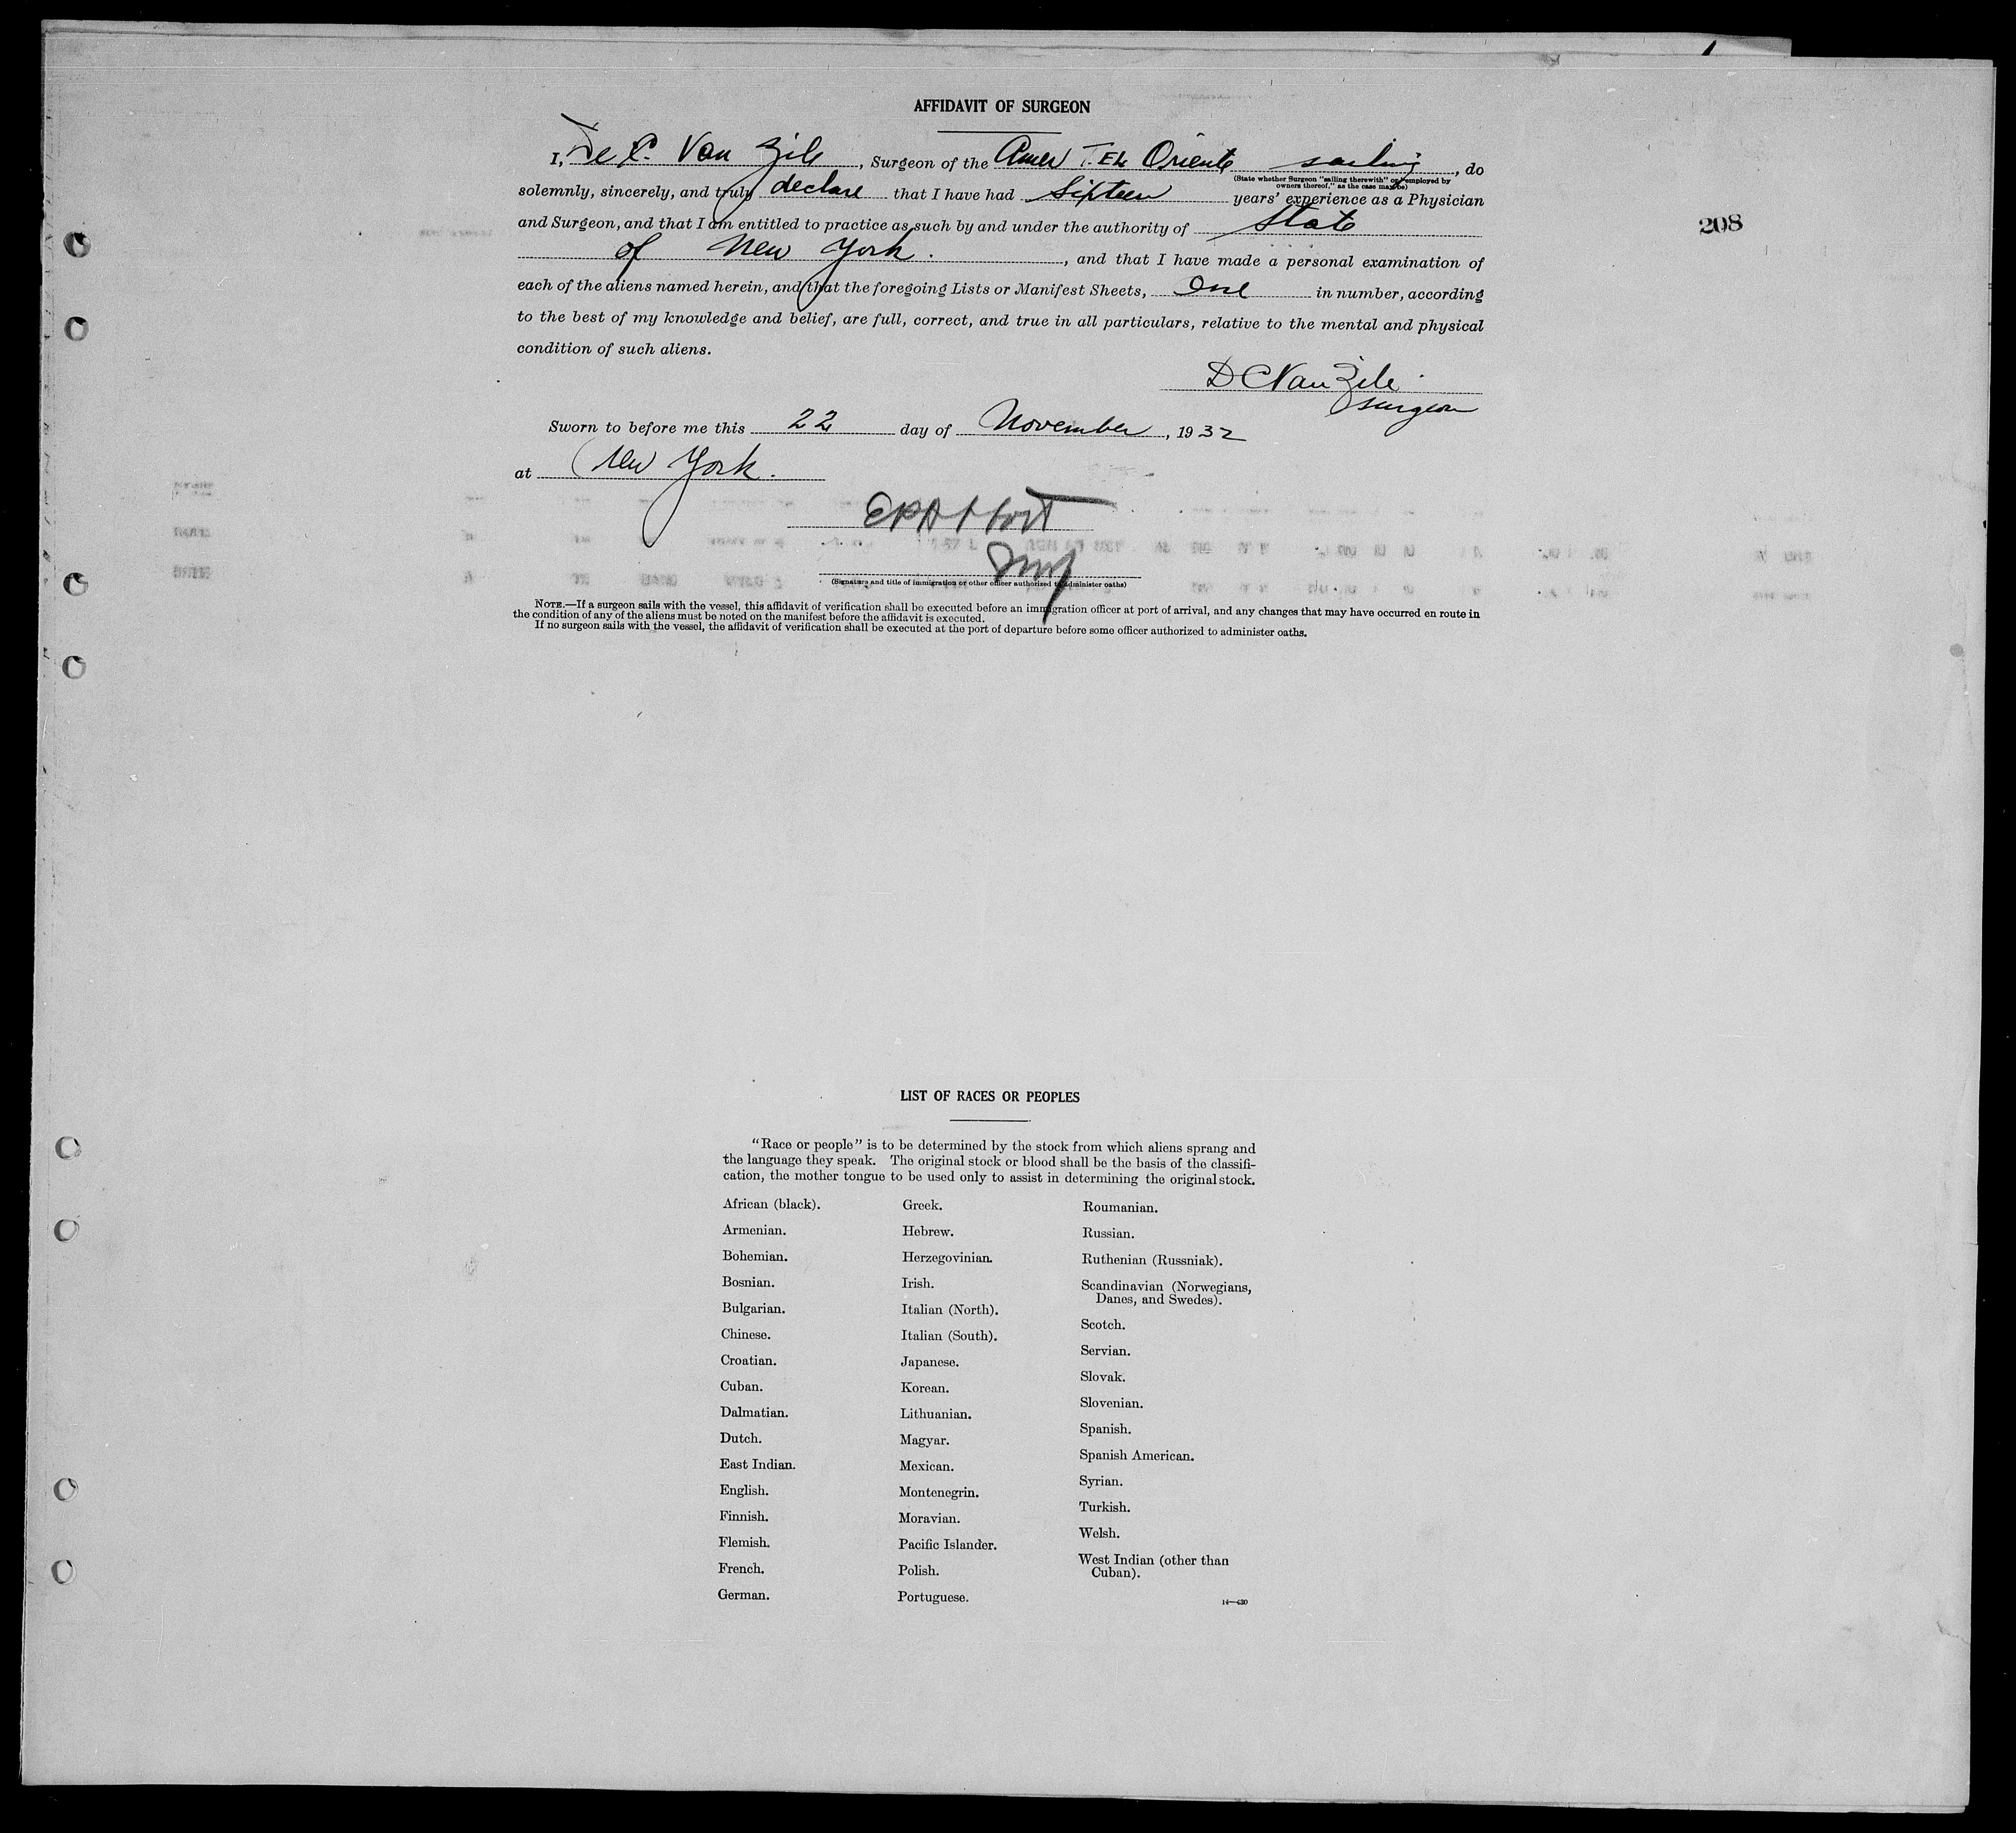 AFFIDAVIT OF SURGEON
I, De C. Van Zile, Surgeon of the Amer T. EL Oriente sailing, do
(State whether Surgeon "sailing therewith" or "employed by
owners thereof," as the case may be)
solemnly, sincerely, and truly declare that I have had Sixteen years' experience as a Physician
and Surgeon, and that I am entitled to practice as such by and under the authority of State
of New York., and that I have made a personal examination of
208
each of the aliens named herein, and that the foregoing Lists or Manifest Sheets, One in number, according
to the best of my knowledge and belief, are full, correct, and true in all particulars, relative to the mental and physical
condition of such aliens.
D C Van Zile
Surgeon
Sworn to before me this 22 day of November, 1932
at New York.
(Signature and title of immigration or other officer authorized to administer oaths)
NOTE.—If a surgeon sails with the vessel, this affidavit of verification shall be executed before an immigration officer at port of arrival, and any changes that may have occurred en route in
the condition of any of the aliens must be noted on the manifest before the affidavit is executed.
If no surgeon sails with the vessel, the affidavit of verification shall be executed at the port of departure before some officer authorized to administer oaths.
LIST OF RACES OR PEOPLES
"Race or people" is to be determined by the stock from which aliens sprang and
the language they speak. The original stock or blood shall be the basis of the classifi-
cation, the mother tongue to be used only to assist in determining the original stock.
African (black).
Armenian.
Bohemian.
Bosnian.
Bulgarian.
Chinese.
Croatian.
Cuban.
Dalmatian.
Dutch.
East Indian.
English.
Finnish.
Flemish.
French.
German.
Greek.
Hebrew.
Herzegovinian.
Irish.
Italian (North).
Italian (South).
Japanese.
Korean.
Lithuanian.
Magyar.
Mexican.
Montenegrin.
Moravian.
Pacific Islander.
Polish.
Portuguese.
Roumanian.
Russian.
Ruthenian (Russniak).
Scandinavian (Norwegians,
Danes, and Swedes).
Scotch.
Servian.
Slovak.
Slovenian.
Spanish.
Spanish American.
Syrian.
Turkish.
Welsh.
West Indian (other than
Cuban).
14—430